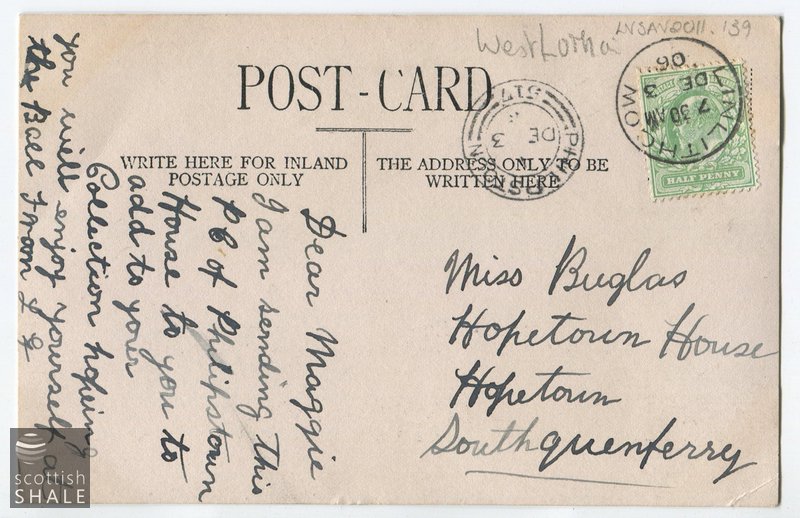 West Lothia
LVSAV2011.139
POST-CARD
LINLITHGOW
7 30 AM
DE 3
06
HALF PENNY
517
DE
3
WRITE HERE FOR INLAND
POSTAGE ONLY
THE ADDRESS ONLY TO BE
WRITTEN HERE
Dear Maggie
I am sending this
PC of Philipstown
House to you to
add to your
Collection hopeing
you will enjoy yourself at
the Ball from
Miss Buglas
Hopetown House
Hopetown
Southquenferry
scottish
SHALE